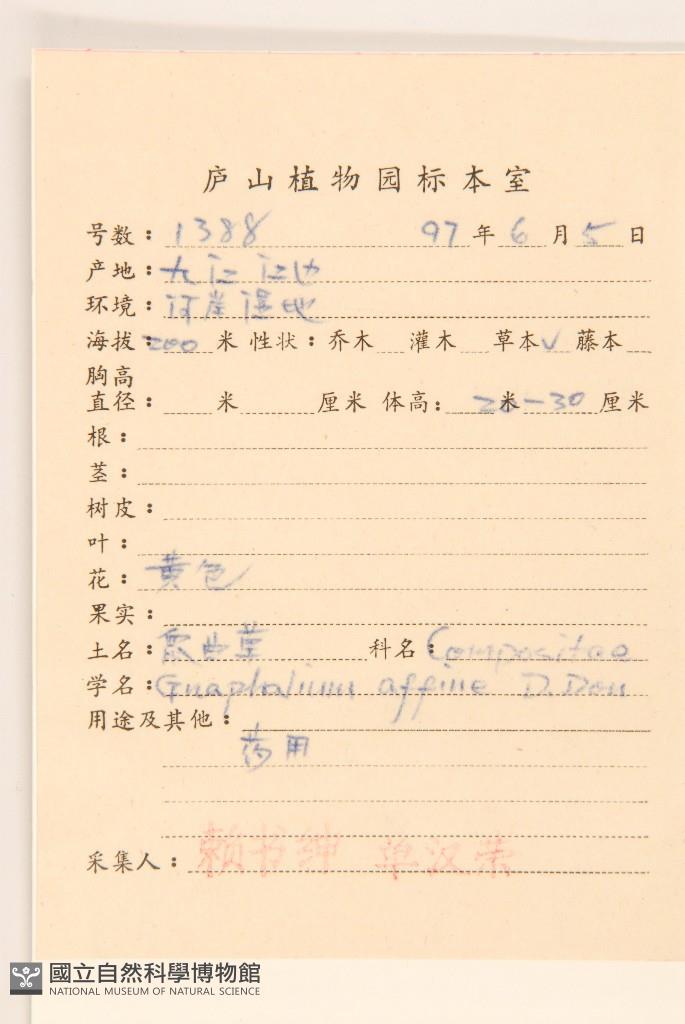 庐山植物园标本室
号数：1388 97年6月5日
产地：九江 江边
环境：河岸湿地
海拔：200 米 性状：乔木 灌木 草本√ 藤本
胸高
直径： 米 厘米 体高： 米20-30 厘米
根：
茎：
树皮：
叶：
花：黄色
果实：
土名：鼠曲草 科名：Compositae
学名：Gnaphalium affine D.Don
用途及其他：
药用
采集人：赖书绅 单汉荣
國立自然科學博物館
NATIONAL MUSEUM OF NATURAL SCIENCE